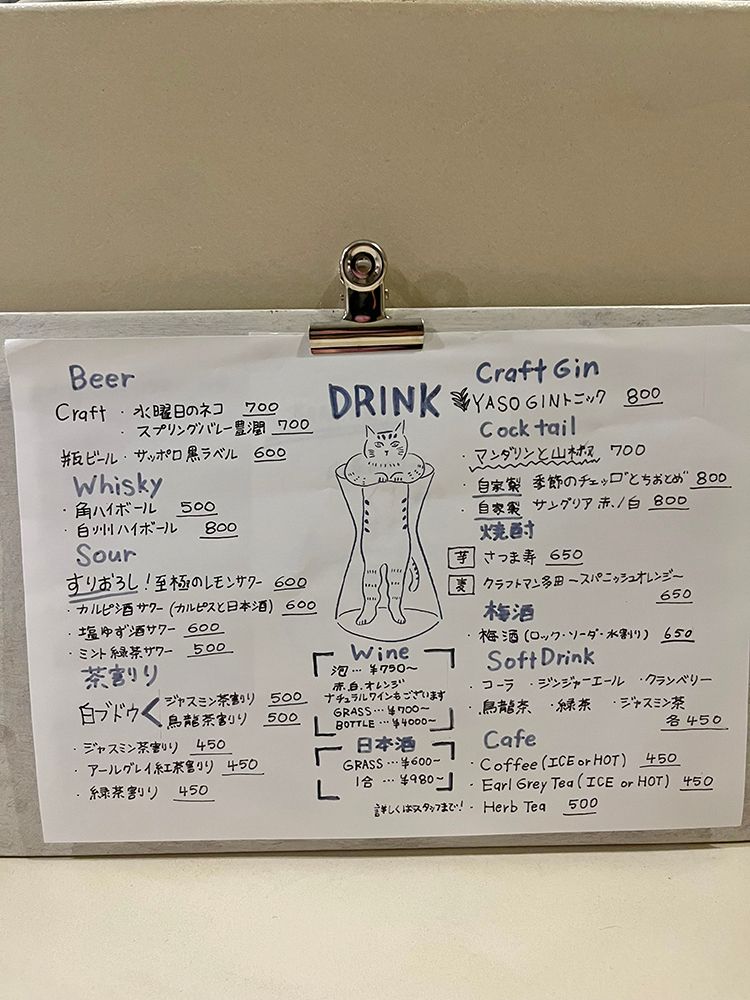 Beer
Craft ・水曜日のネコ 700
・スプリングバレー豊潤 700
瓶ビール・サッポロ黒ラベル 600
Whisky
・角ハイボール 500
・白州ハイボール 800
Sour
すりおろし!至極のレモンサワー 600
・カルピ酒サワー(カルピスと日本酒) 600
・塩ゆず酒サワー 600
・ミント緑茶サワー 500
茶割り
白ブドウ< ジャスミン茶割り 500
烏龍茶割り 500
・ジャスミン茶割り 450
・アールグレイ紅茶割り 450
・緑茶割り 450
DRINK
Wine
泡…¥750〜
赤.白.オレンジ
ナチュラルワインもございます
GRASS…¥700〜
BOTTLE…¥4000〜
日本酒
GRASS…¥600〜
1合…¥980〜
詳しくはスタッフまで!
Craft Gin
YASO GINトニック 800
Cocktail
・マンダリンと山椒 700
・自家製 季節のチェッロ"とちおとめ" 800
・自家製 サングリア 赤/白 800
焼酎
芋 さつま寿 650
麦 クラフトマン多田〜スパニッシュオレンジ〜
650
梅酒
・梅酒(ロック・ソーダ・水割り) 650
Soft Drink
・コーラ ・ジンジャーエール ・クランベリー
・烏龍茶 ・緑茶 ・ジャスミン茶
各450
Cafe
・Coffee(ICE or HOT) 450
・Earl Grey Tea(ICE or HOT) 450
・Herb Tea 500